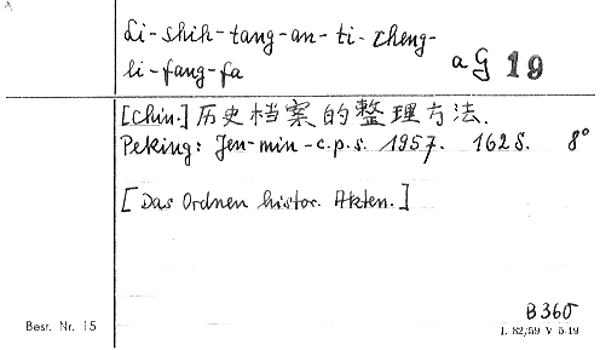 Li-shih-tang-an-ti-cheng-
li-fang-fa
a G 19
[Chin.] 历史档案的整理方法.
Peking: Jen-min-c.p.s. 1957. 162 S. 8°
[Das Ordnen histor. Akten.]
B 360
Best. Nr. 15
I. 82/59 V 5 19